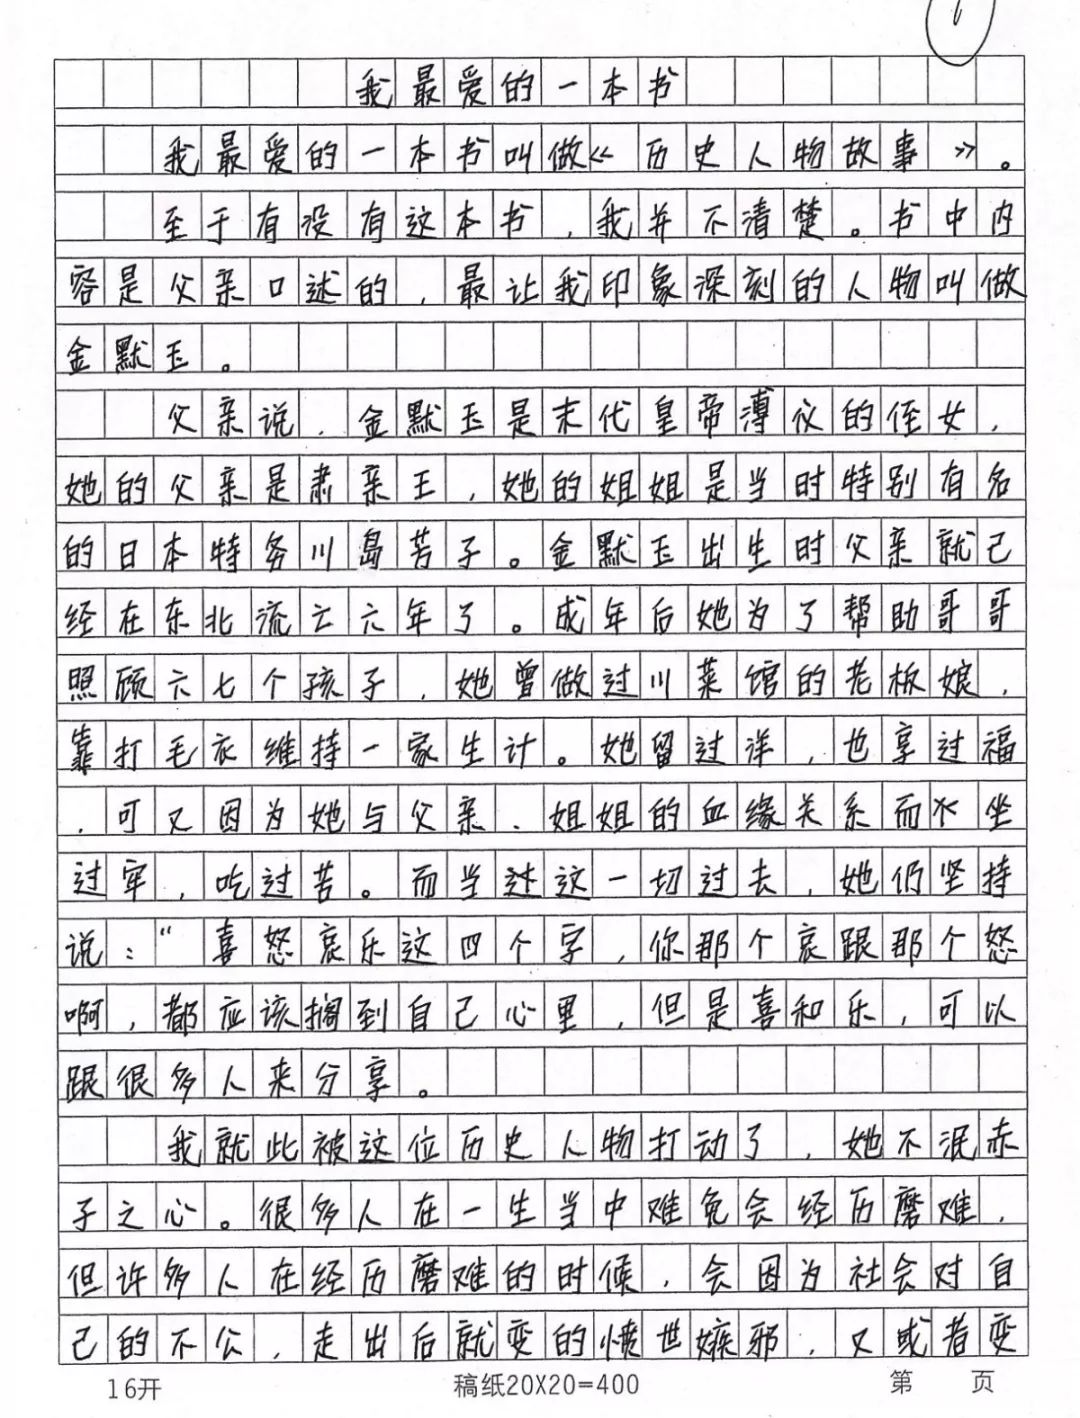 我最爱的一本书
我最爱的一本书叫做《历史人物故事》。
至于有没有这本书，我并不清楚。书中内
容是父亲口述的，最让我印象深刻的人物叫做
金默玉。
父亲说，金默玉是末代皇帝溥仪的侄女，
她的父亲是肃亲王，她的姐姐是当时特别有名
的日本特务川岛芳子。金默玉出生时父亲就已
经在东北流亡六年了。成年后她为了帮助哥哥
照顾六七个孩子，她曾做过川菜馆的老板娘，
靠打毛衣维持一家生计。她留过洋，也享过福
，可又因为她与父亲、姐姐的血缘关系而坐
过牢，吃过苦。而当这一切过去，她仍坚持
说：“喜怒哀乐这四个字，你那个哀跟那个怒
啊，都应该搁到自己心里，但是喜和乐，可以
跟很多人来分享。
我就此被这位历史人物打动了，她不泯赤
子之心。很多人在一生当中难免会经历磨难，
但许多人在经历磨难的时候，会因为社会对自
己的不公，走出后就变的愤世嫉邪，又或者变
16开
稿纸20X20=400
第 页